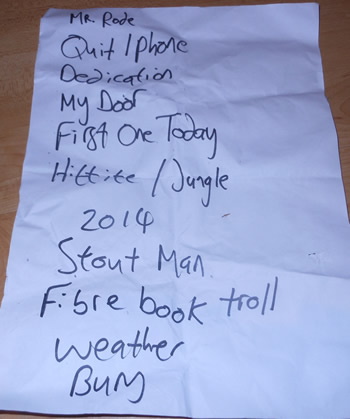 Mr. Rode
Quit / Phone
Dedication
My Door
First One Today
Hittite / Jungle
2014
Stout Man
Fibre book troll
Weather
BURY